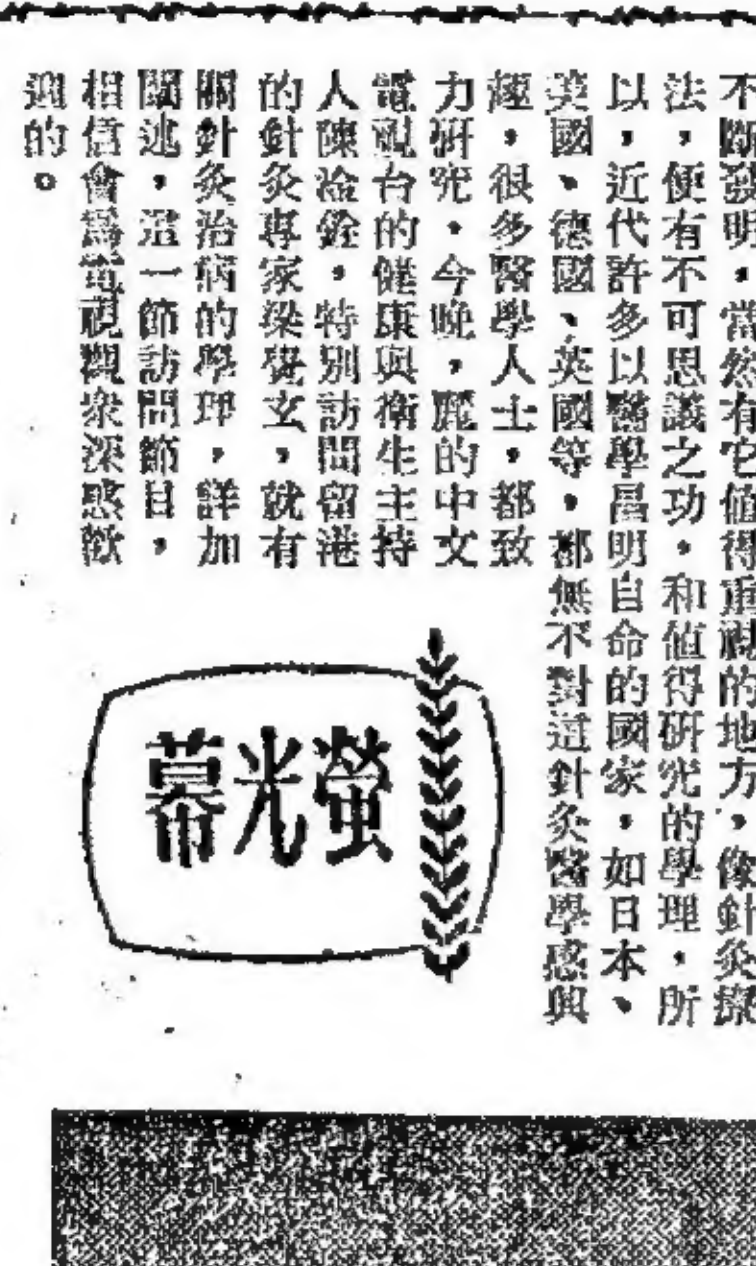 不斷發明，當然有它值得重視的地方，像針灸療
法，便有不可思議之功，和值得研究的學理，所
以，近代許多以醫學昌明自命的國家，如日本、
美國、德國、英國等，都無不對這針灸醫學感興
趣，很多醫學人士，都致
力研究，今晚，麗的中文
電視台的健康與衛生主持
人陳洽銓，特別訪問留港
的針灸專家梁覺玄，就有
關針灸治病的學理，詳加
闡述，這一節訪問節目，
相信會爲電視觀衆深感歡
迎的。
螢光幕